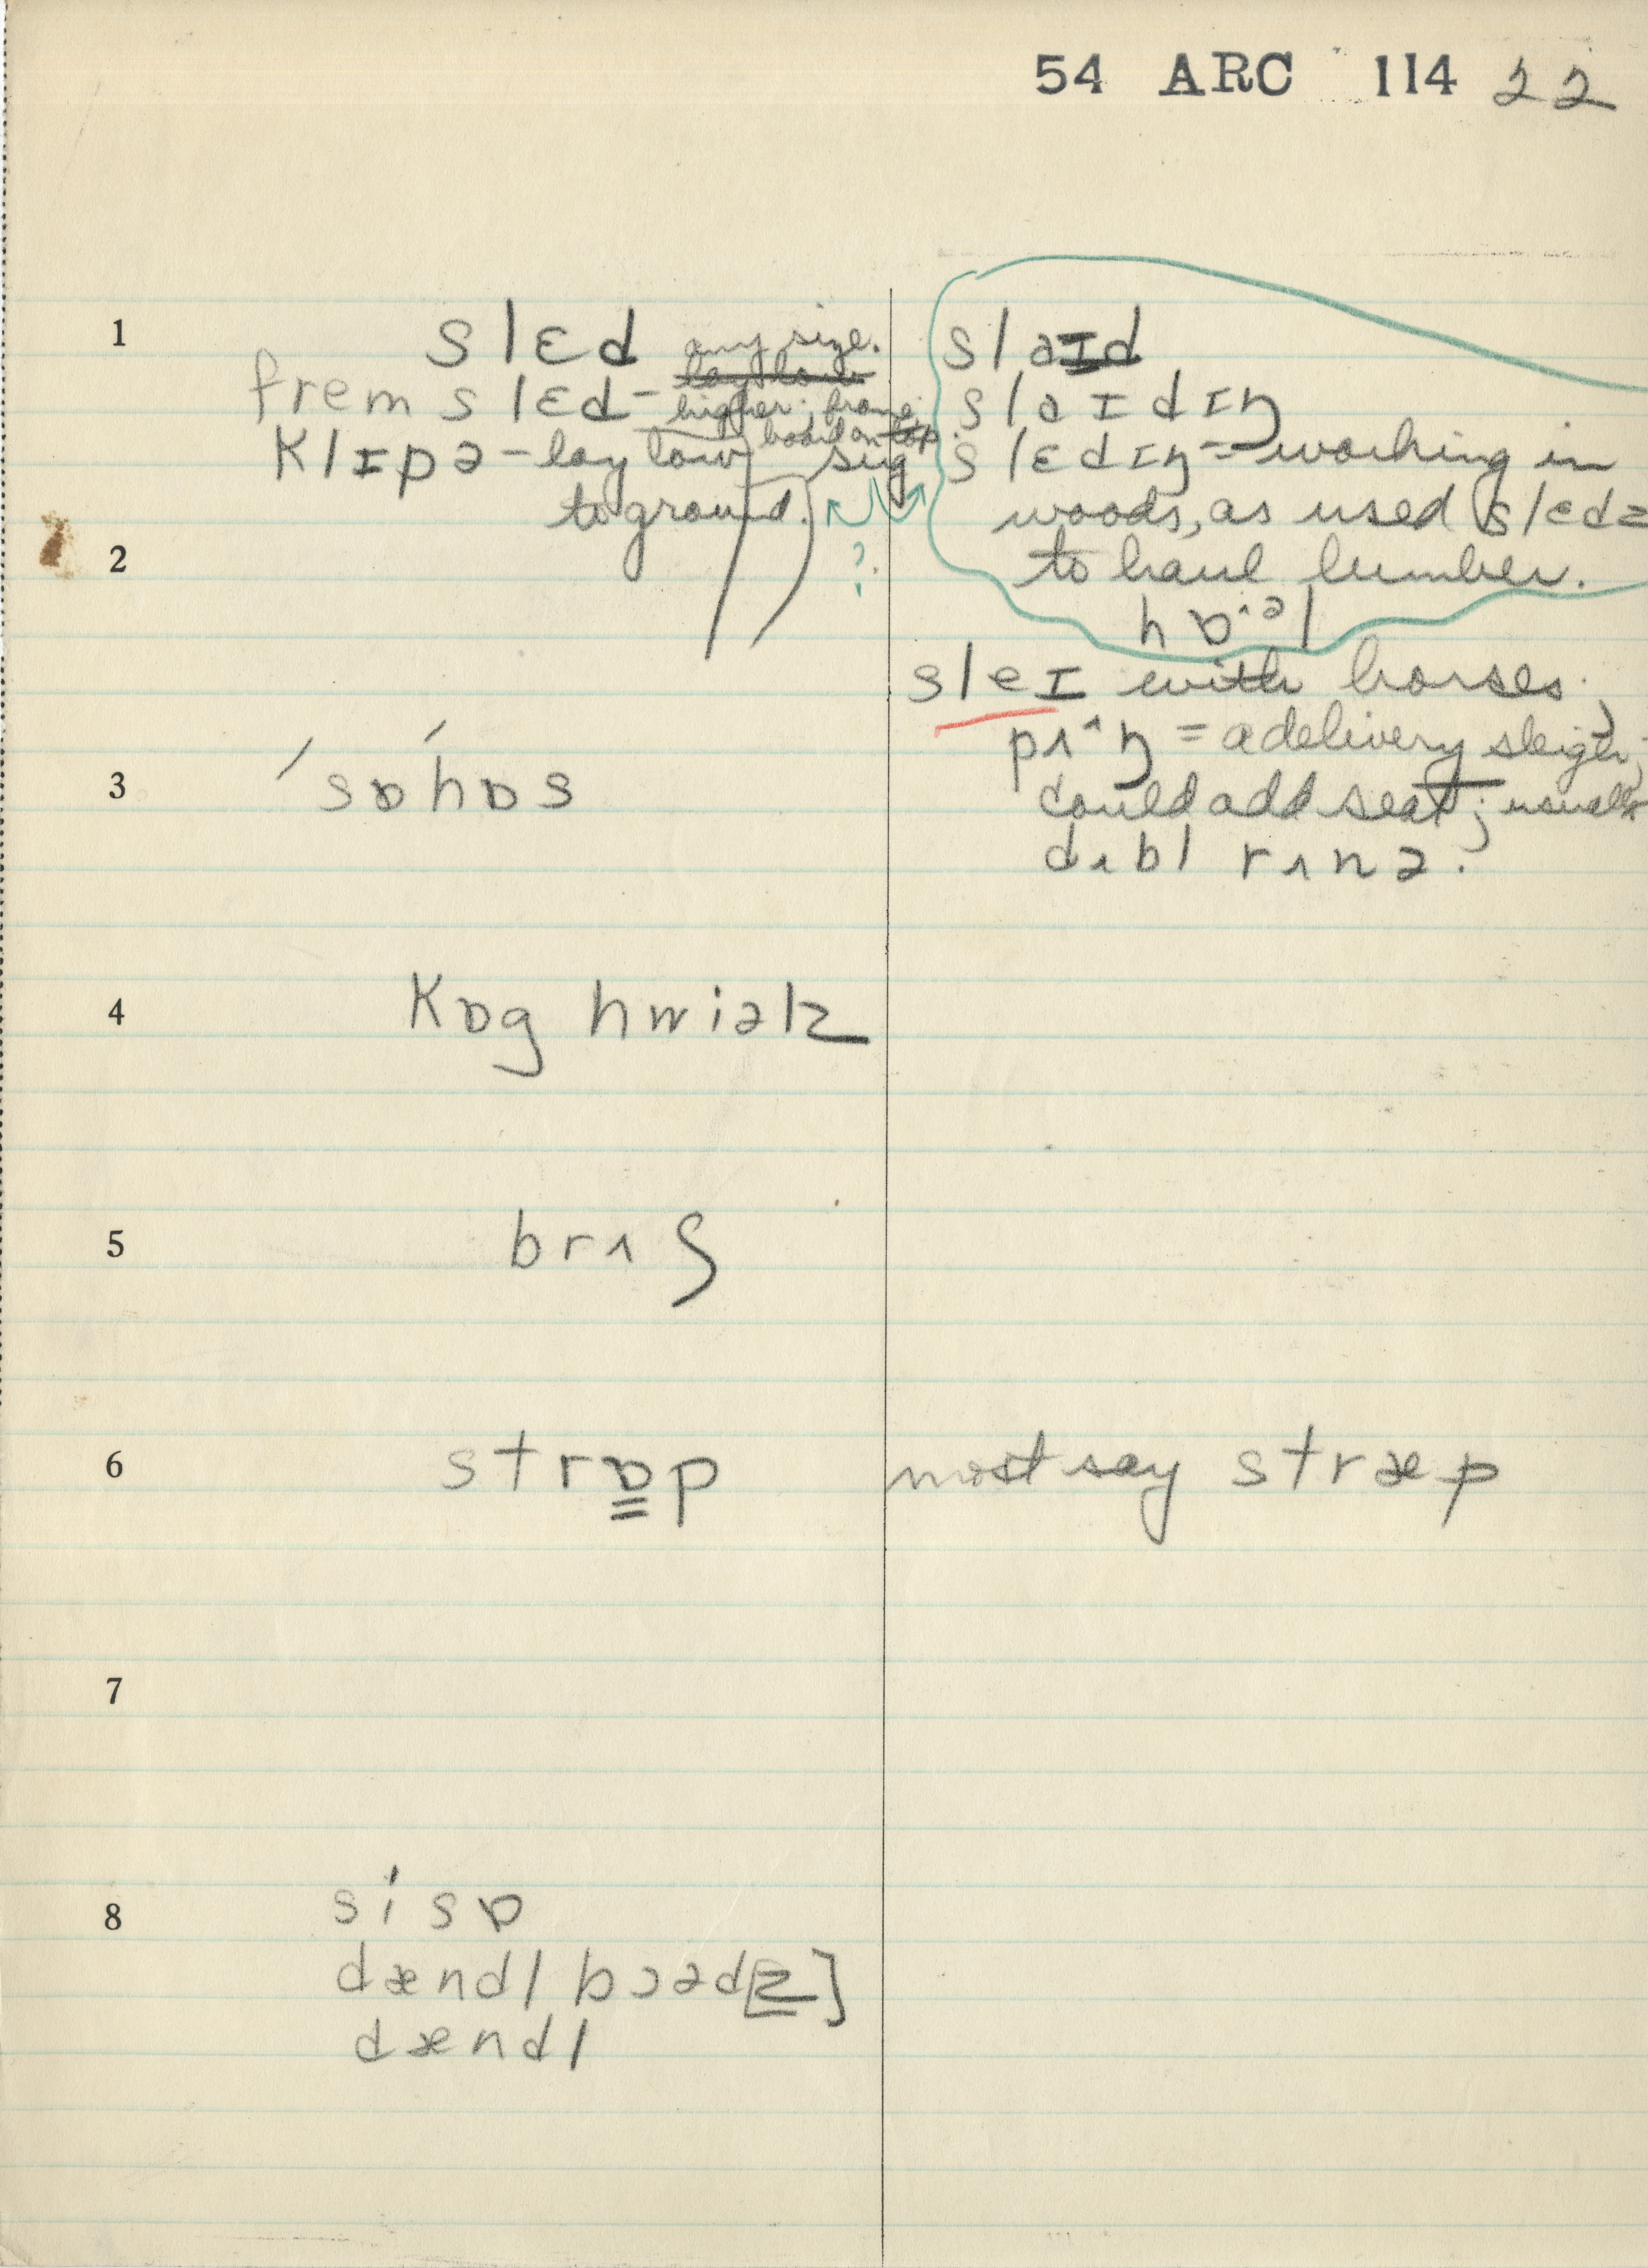 54 ARC 114 22
1
slɛd any size.
lay low
frem slɛd - higher; frame;
board on top.
klɪpə - lay low sug
to ground.
?
slaɪd
slaɪdɪŋ
slɛdɪŋ = working in
woods, as used slɛdz
to haul lumber.
2
sleɪ with horses;
pʌ^ŋ = a delivery sleigh;
could add seat; usually
dʌbl rʌnə.
3
ˈsɒˊhɒs
4
kɒg hwiəlz
5
brʌʃ
6
strɒp
most say stræp
7
8
sísɒ
dændl bɔəd[z]
dændl